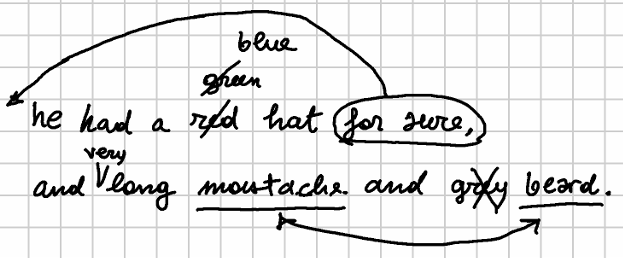 blue
green
he had a red hat for sure,
very
and long moustache and gray beard.